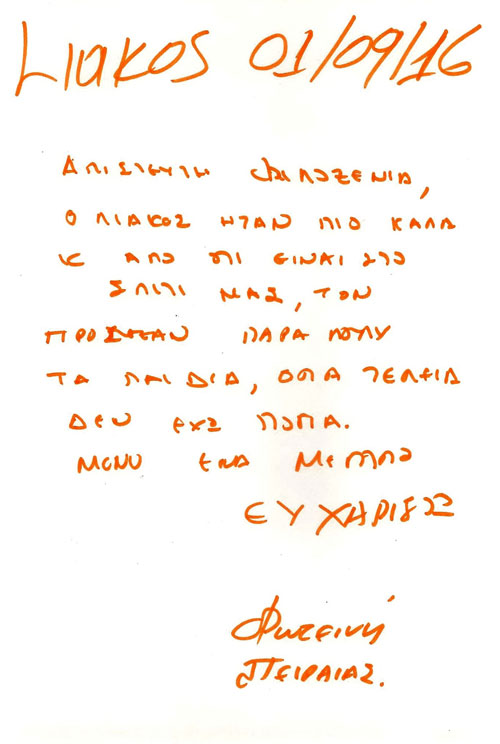 Liakos 01/09/16
ΑΠΙΣΤΕΥΤΗ ΦΙΛΟΞΕΝΙΑ,
Ο ΛΙΑΚΟΣ ΗΤΑΝ ΠΙΟ ΚΑΛΑ
Κ ΑΠΟ ΟΤΙ ΕΙΝΑΙ ΣΤΟ
ΣΠΙΤΙ ΜΑΣ, ΤΟΝ
ΠΡΟΣΕΧΑΝ ΠΑΡΑ ΠΟΛΥ
ΤΑ ΠΑΙΔΙΑ, ΟΛΑ ΤΕΛΕΙΑ
ΔΕΝ ΕΧΩ ΛΟΓΙΑ.
ΜΟΝΟ ΕΝΑ ΜΕΓΑΛΟ
ΕΥΧΑΡΙΣΤΩ
Φωτεινή
Πειραιάς.